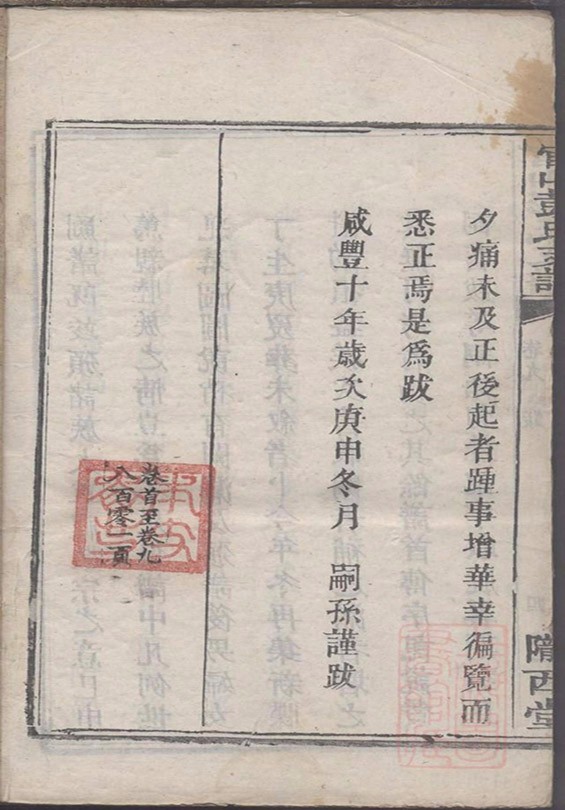 夕痛未及正後起者踵事增華幸徧覽而
悉正焉是爲跋
咸豐十年歲次庚申冬月　嗣孫謹跋
卷首至卷九
八百零一頁
隴西堂